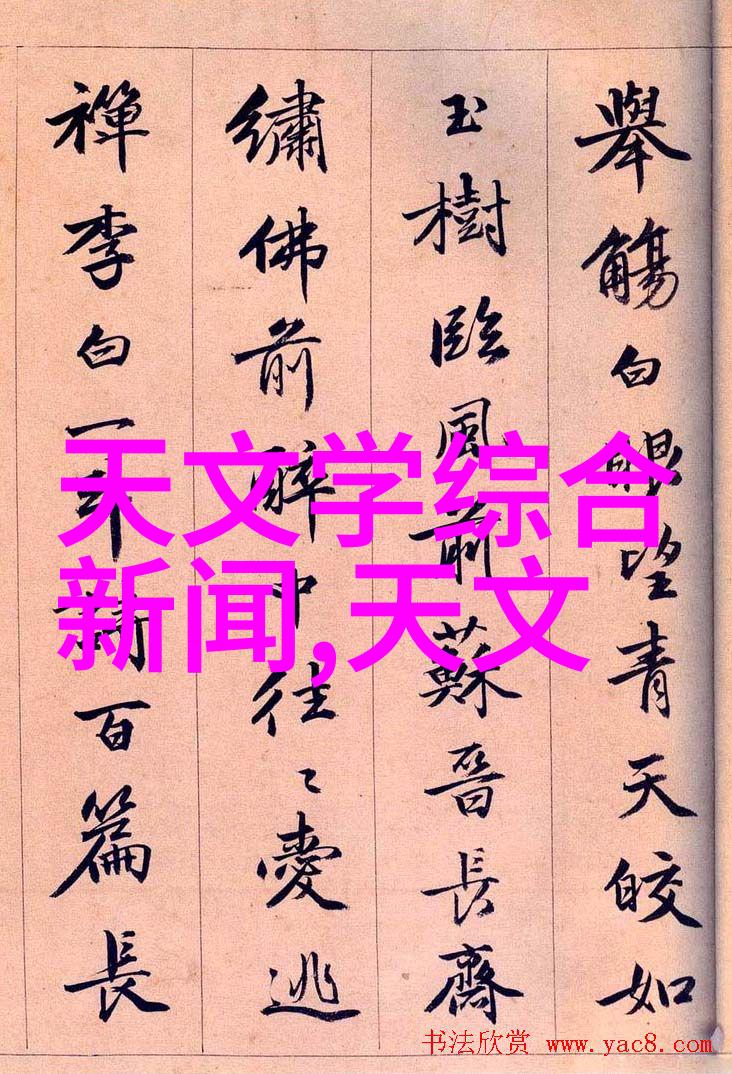 舉觴白眼望青天皎如
玉樹臨風前蘇晉長齋
繡佛前醉中往〻愛逃
禪李白一斗詩百篇長
天文学综合
新闻,天文
书法欣赏 www.yac8.com